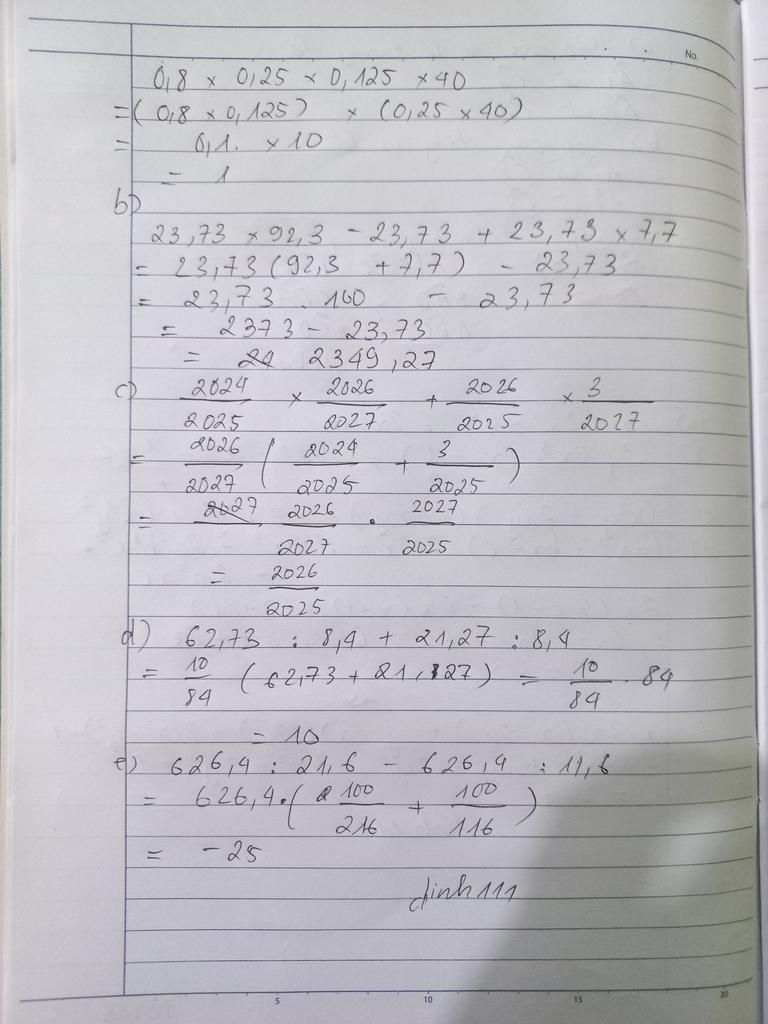 No.
0,8 × 0,25 × 0,125 × 40
= (0,8 × 0,125) × (0,25 × 40)
= 0,1. × 10
= 1
b)
23,73 × 92,3 - 23,73 + 23,73 × 7,7
= 23,73 (92,3 + 7,7) - 23,73
= 23,73 . 100 - 23,73
= 2373 - 23,73
= 2349,27
c) 2024/2025 × 2026/2027 + 2026/2025 × 3/2027
= 2026/2027 (2024/2025 + 3/2025)
= 2026/2027 . 2027/2025
= 2026/2025
d) 62,73 : 8,4 + 21,27 : 8,4
= 10/84 (62,73 + 21,27) = 10/84 . 84
= 10
e) 626,4 : 21,6 - 626,4 : 11,6
= 626,4 . (100/216 + 100/116)
= -25
dinh111
5 10 15 20